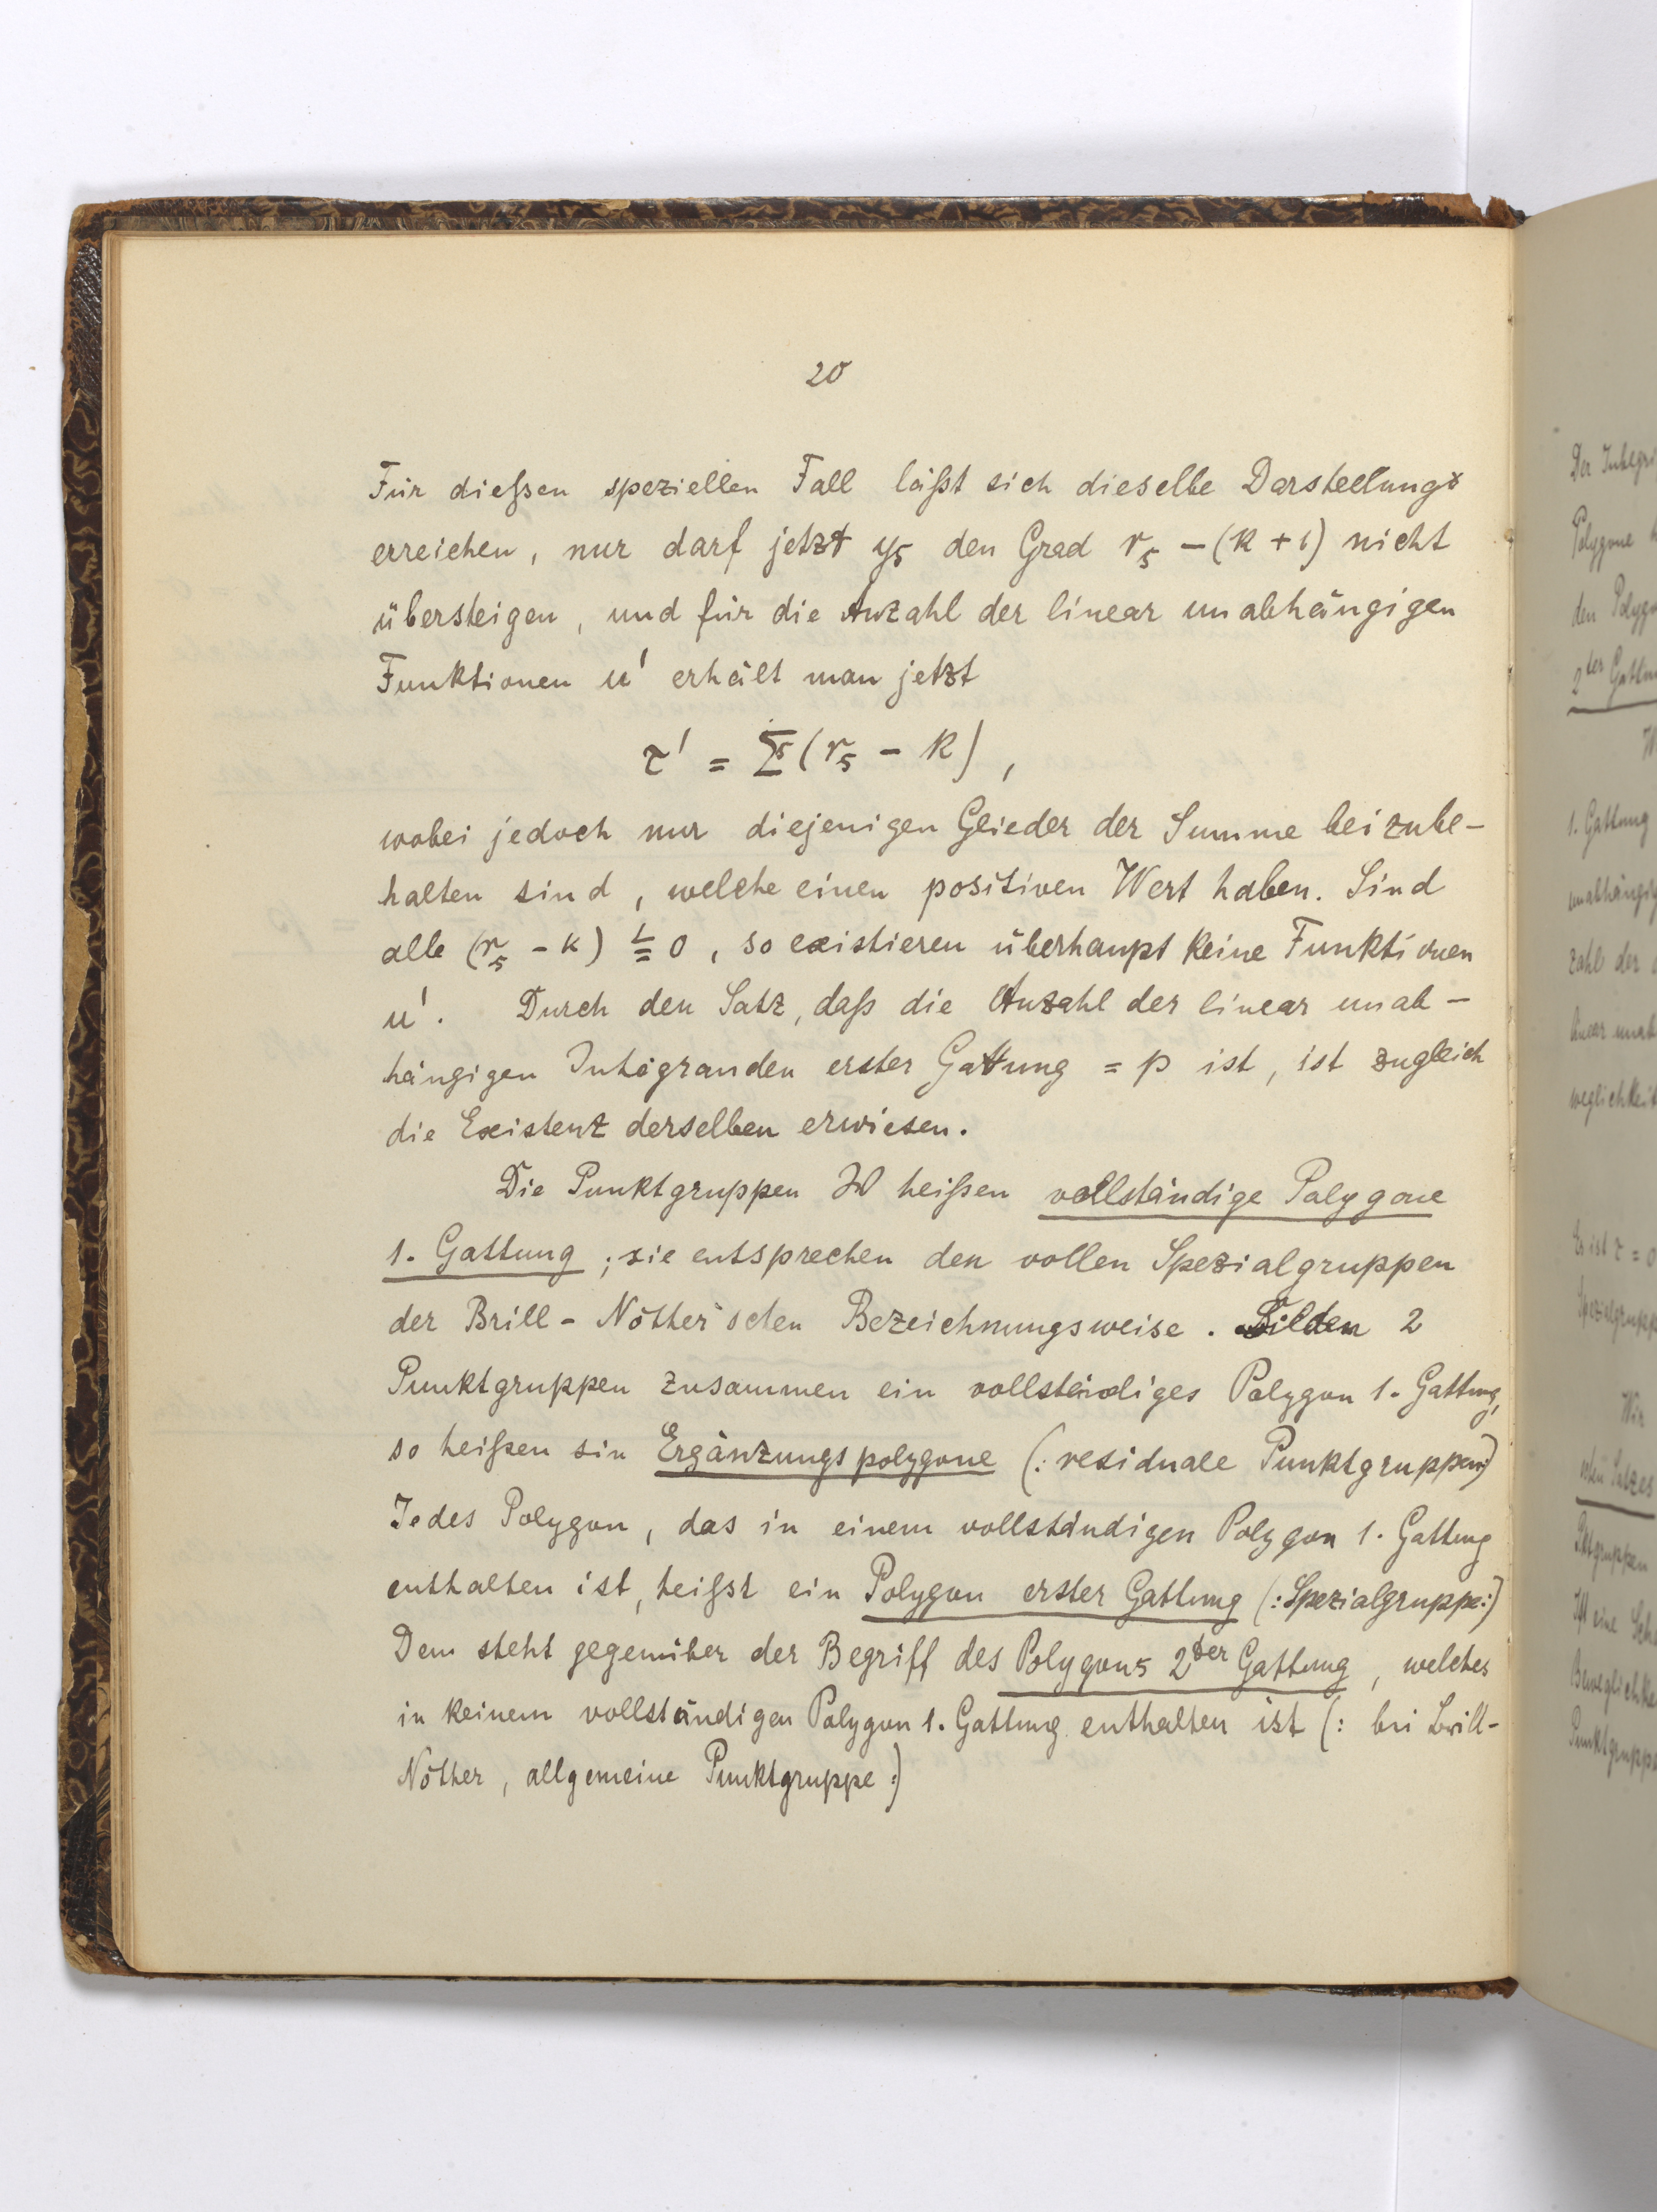 20
Für dießen speziellen Fall läßt sich dieselbe Darstellung
erreichen, nur darf jetzt y₅ den Grad r₅ – (k + 1) nicht
übersteigen, und für die Anzahl der linear unabhängigen
Funktionen u' erhält man jetzt
τ' = Σ (r₅ – k),
wobei jedoch nur diejenigen Glieder der Summe beizube–
halten sind, welche einen positiven Wert haben. Sind
alle (r₅ – k) ≦ 0, so existieren überhaupt keine Funktionen
u'. Durch den Satz, daß die Anzahl der linear unab–
hängigen Integranden erster Gattung = p ist, ist zugleich
die Existenz derselben erwiesen.
Die Punktgruppen W heißen vollständige Polygone
1. Gattung; sie entsprechen den vollen Spezialgruppen
der Brill-Nöther'schen Bezeichnungsweise. Bilden 2
Punktgruppen zusammen ein vollständiges Polygon 1. Gattung,
so heißen sin Ergänzungspolygone (: residuale Punktgruppen:)
Jedes Polygon, das in einem vollständigen Polygon 1. Gattung
enthalten ist, heißst ein Polygon erster Gattung (: Spezialgruppe:)
Dem steht gegenüber der Begriff des Polygons 2ter Gattung, welches
in keinem vollständigen Polygon 1. Gattung enthalten ist (: bei Brill-
Nöther, allgemeine Punktgruppe:)
Polygone
1. Gattung
zahl der
Punktgruppe